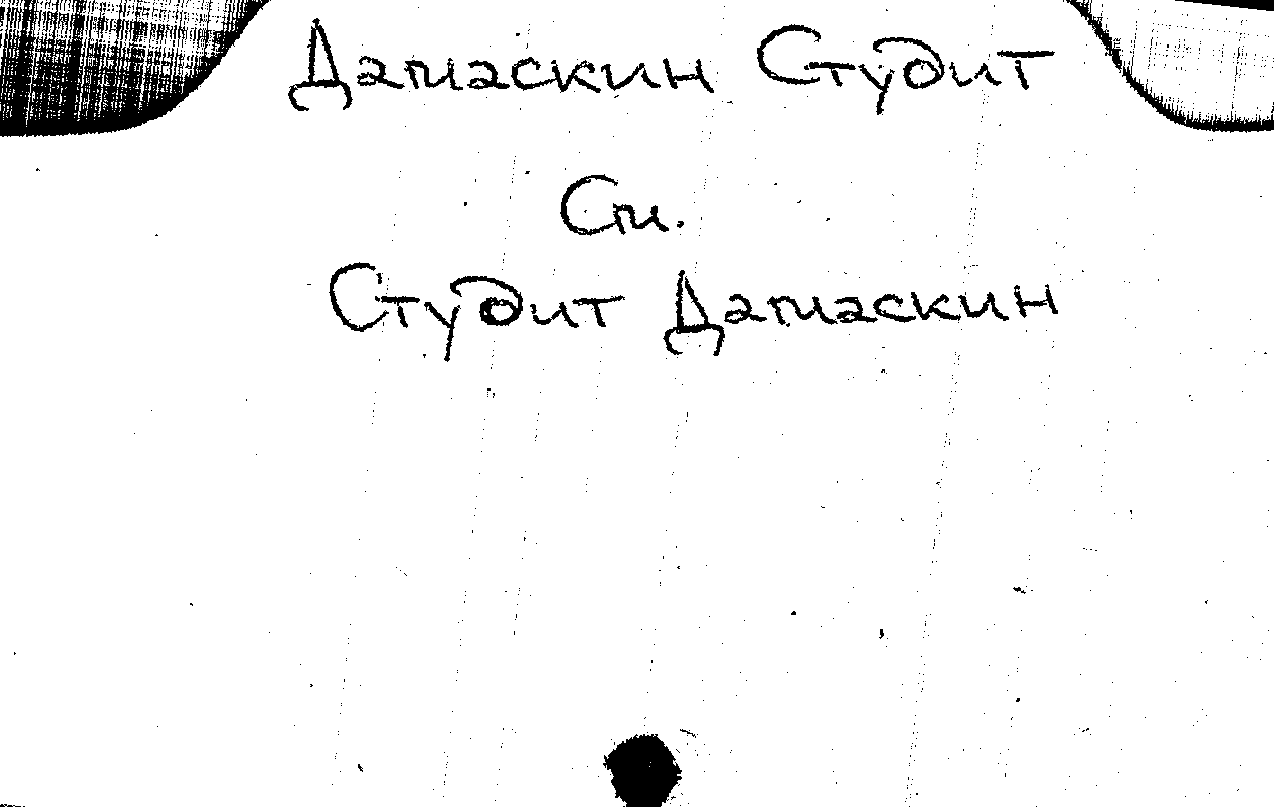 Дамаскин Студит
См.
Студит Дамаскин